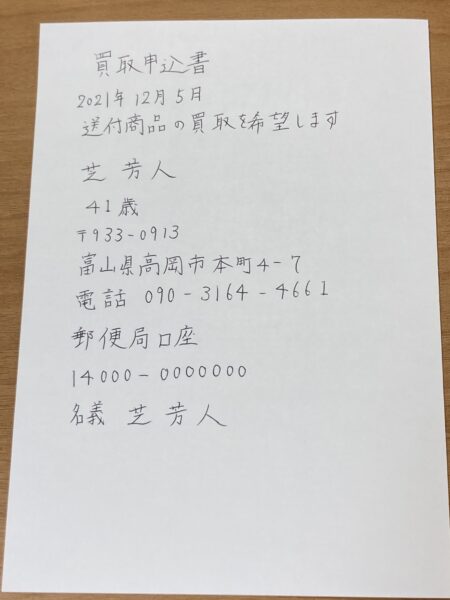 買取申込書
2021年12月5日
送付商品の買取を希望します
芝芳人
41歳
〒933-0913
富山県高岡市本町4-7
電話 090-3164-4661
郵便局口座
14000-0000000
名義 芝芳人